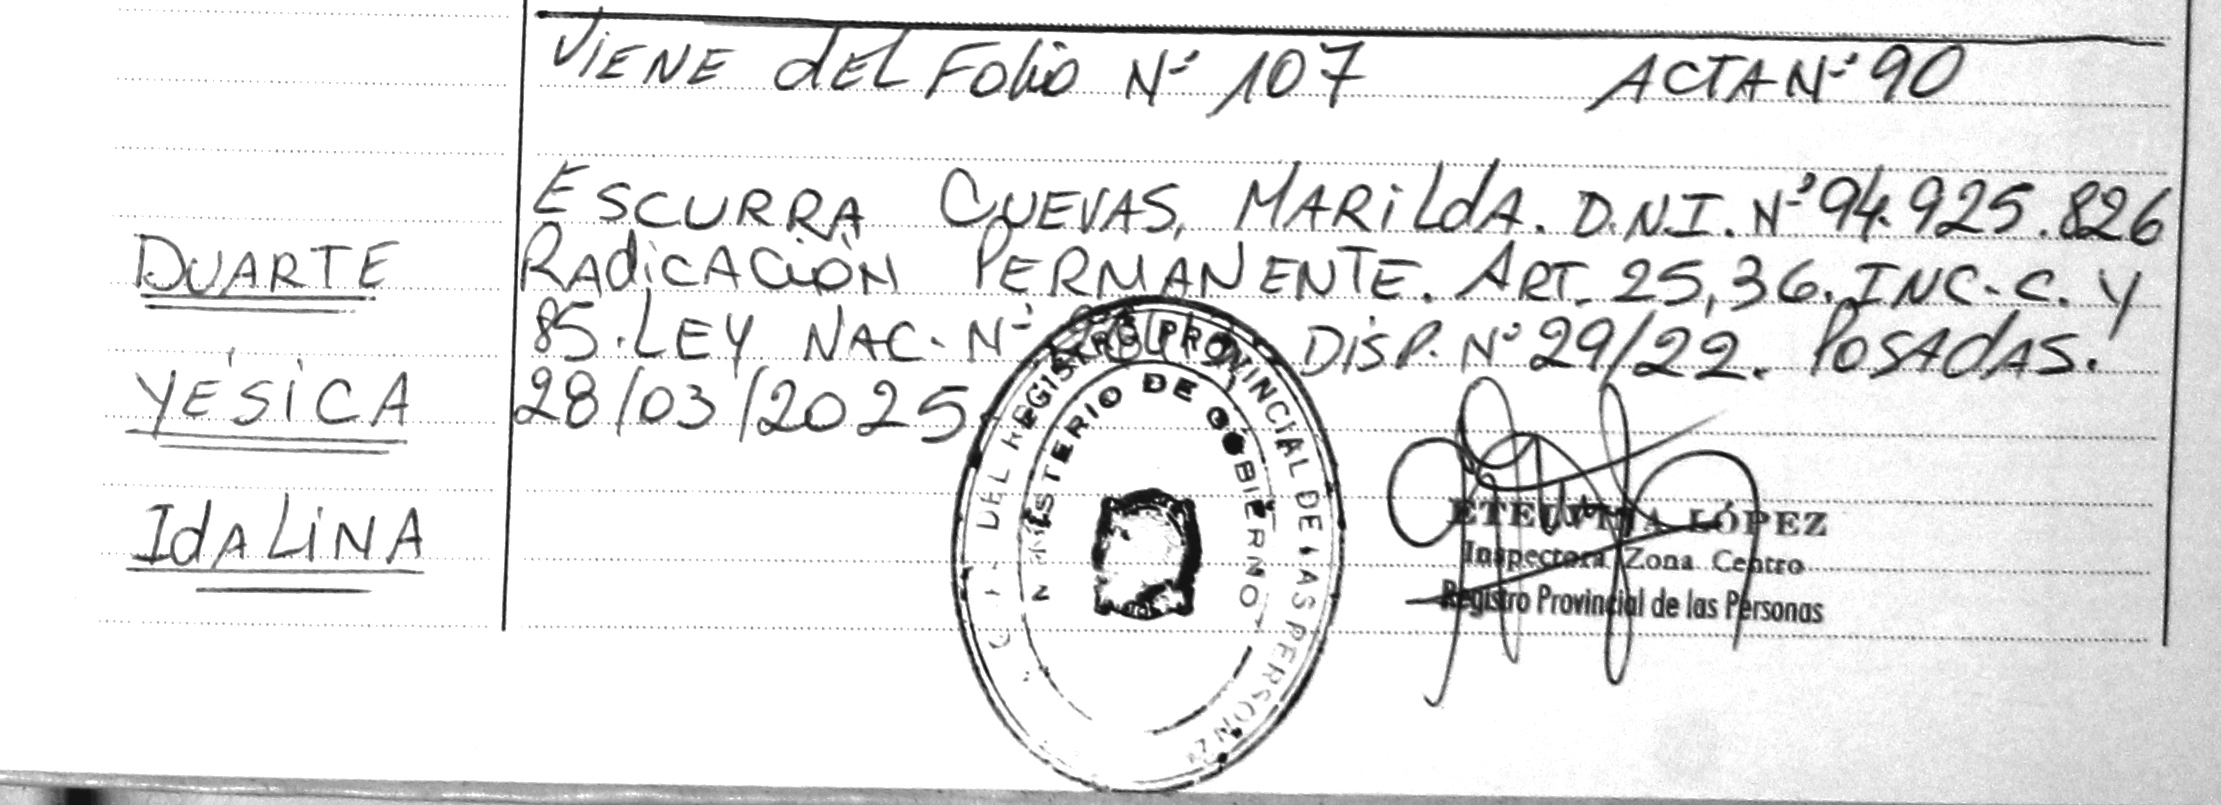 VIENE dEL Folio Nº 107 ACTA Nº 90
DUARTE
YÉSICA
IdALINA
ESCURRA CUEVAS, MARILdA. D.N.I. Nº 94.925.826
RAdICACIÓN PERMANENTE. ART. 25,36. INC-C. Y
85. LEY NAC. Nº DISP. Nº 29/22. POSADAS.
28/03/2025
DEL REGISTRO PROVINCIAL DE LAS PERSONAS
MINISTERIO DE GOBIERNO
ETELVINA LÓPEZ
Inspectora Zona Centro
Registro Provincial de las Personas